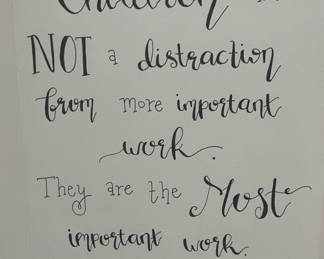 Children
NOT a distraction
from more important
work.
They are the Most
important work.